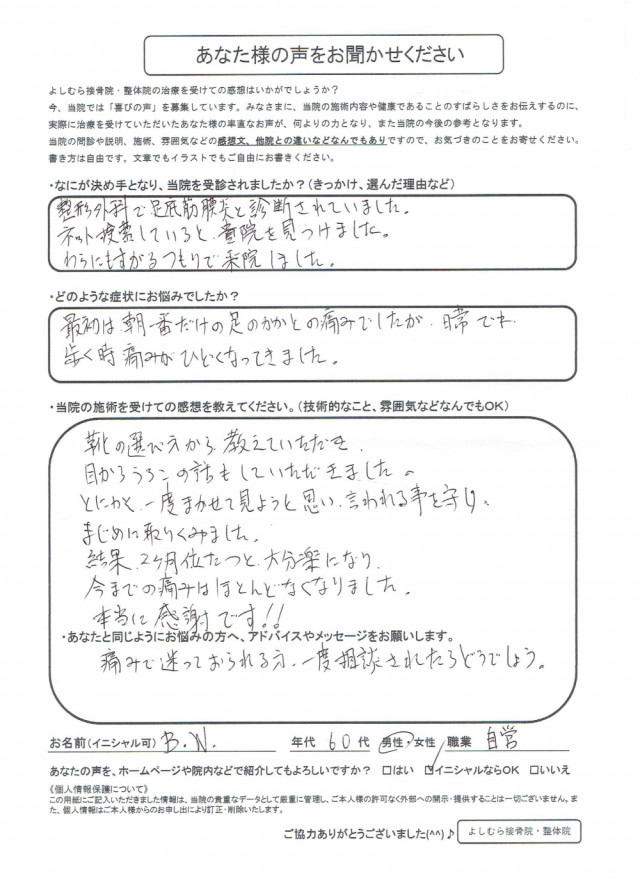 あなた様の声をお聞かせください
よしむら接骨院・整体院の治療を受けての感想はいかがでしょうか？
今、当院では「喜びの声」を募集しています。みなさまに、当院の施術内容や健康であることのすばらしさをお伝えするのに、
実際に治療を受けていただいたあなた様の率直なお声が、何よりの力となり、また当院の今後の参考となります。
当院の問診や説明、施術、雰囲気などの感想文、他院との違いなどなんでもありですので、お気づきのことをお寄せください。
書き方は自由です。文章でもイラストでもご自由にお書きください。
・なにが決め手となり、当院を受診されましたか？（きっかけ、選んだ理由など）
整形外科で足底筋腱炎と診断されていました。
ネット検索していると、貴院を見つけました。
わらにもすがるつもりで来院しました。
・どのような症状にお悩みでしたか？
最初は朝一番だけの足のかかとの痛みでしたが、日常でも
歩く時痛みがひどくなってきました。
・当院の施術を受けての感想を教えてください。（技術的なこと、雰囲気などなんでもOK）
靴の選び方から教えていただき、
目からうろこの話もしていただきました。
とにかく、一度まかせて見ようと思い、言われる事を守り、
まじめに取りくみました。
結果、2ヶ月位たつと、大分楽になり、
今までの痛みはほとんどなくなりました。
本当に感謝です!!
・あなたと同じようにお悩みの方へ、アドバイスやメッセージをお願いします。
痛みで迷っておられる方、一度相談されたらどうでしょう。
お名前（イニシャル可） B.N. 年代 60代 男性・女性 職業 自営
あなたの声を、ホームページや院内などで紹介してもよろしいですか？ □はい ☑イニシャルならOK □いいえ
《個人情報保護について》
この用紙にご記入いただきました情報は、当院の貴重なデータとして厳重に管理し、ご本人様の許可なく外部への開示・提供することは一切ございません。ま
た、個人情報はご本人様からのお申し出により訂正・削除いたします。
ご協力ありがとうございました(^^)♪ よしむら接骨院・整体院